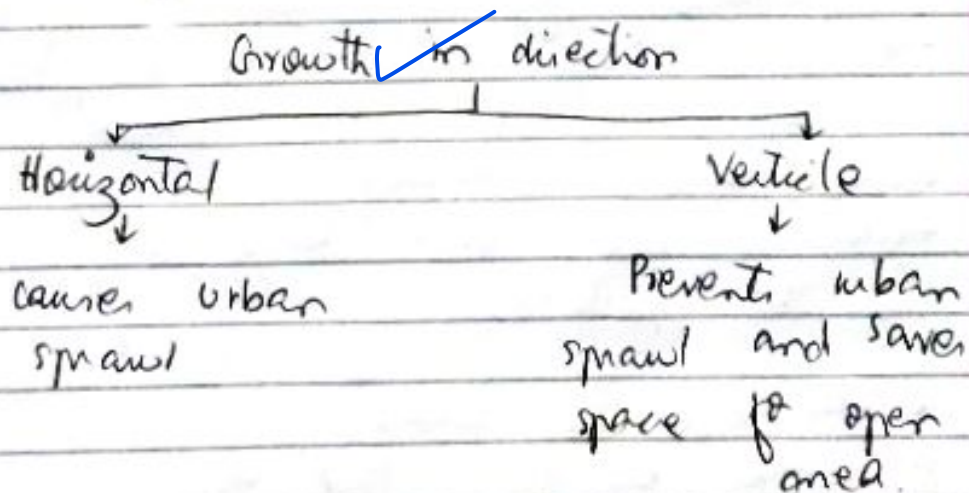 Growth in direction
Horizontal
Verticle
causes urban
sprawl
Prevents urban
sprawl and saves
space for open
area.